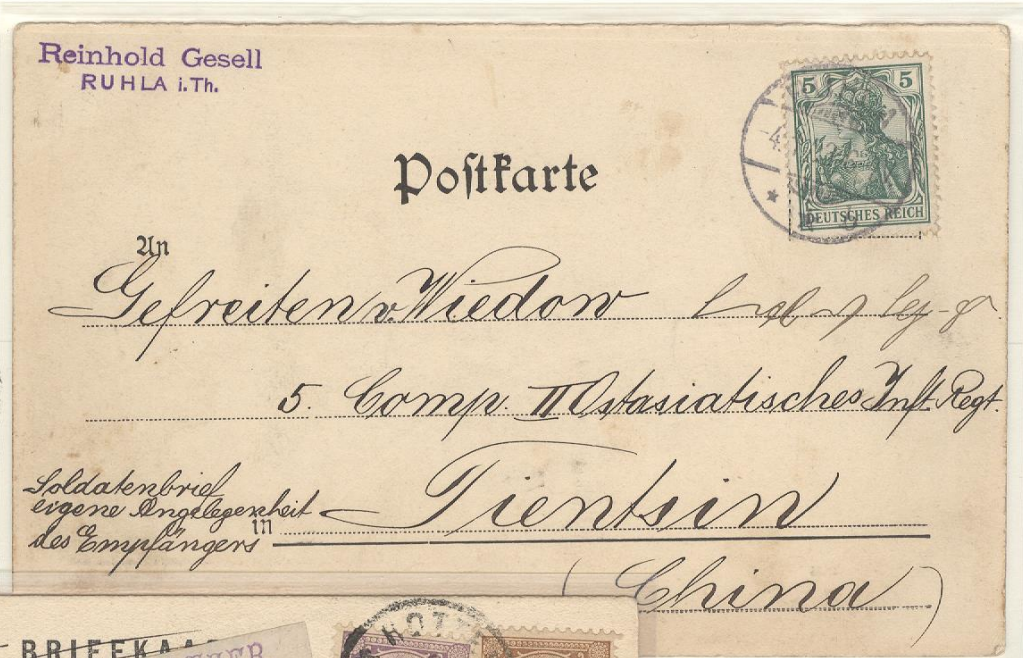 Reinhold Gesell
RUHLA i.Th.
5 5
DEUTSCHES REICH
Postkarte
An
Gefreiten v. Wiedow
5. Comp. II Ostasiatisches Inft. Regt.
Soldatenbrief
eigene Angelegenheit
des Empfängers
in Tientsin
(China)
BRIEFKAA
HOT